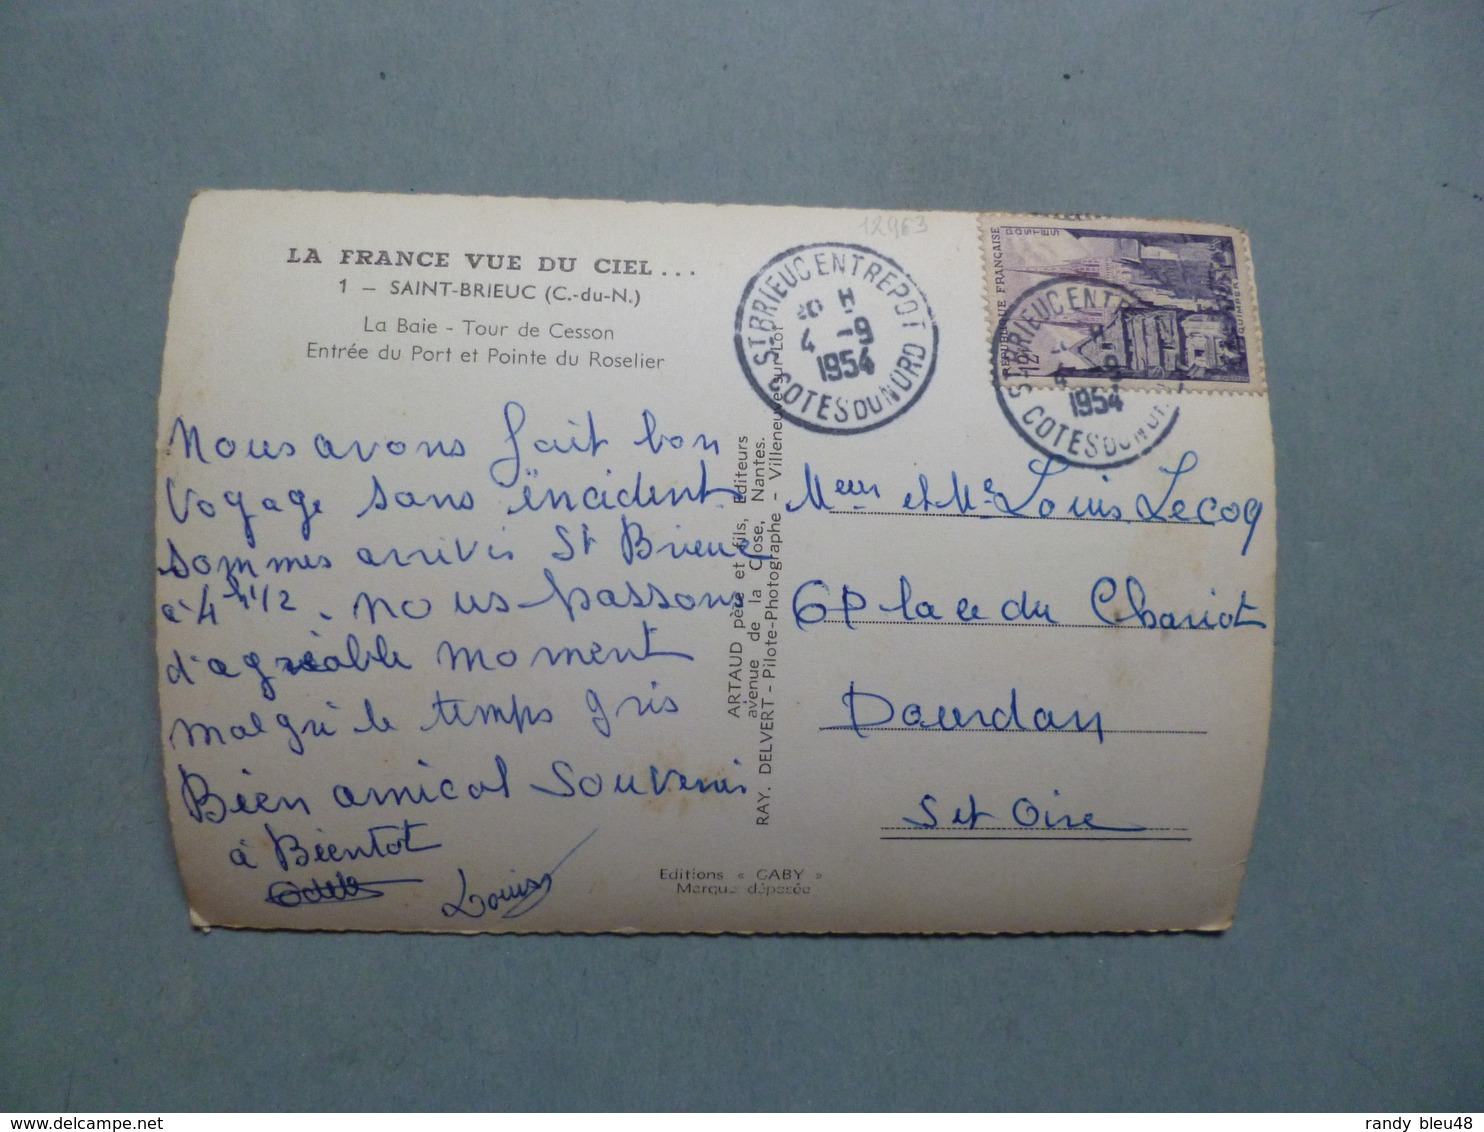 12963
LA FRANCE VUE DU CIEL...
1 – SAINT-BRIEUC (C.-du-N.)
La Baie - Tour de Cesson
Entrée du Port et Pointe du Roselier
ST BRIEUC ENTREPOT
H
4 -9
1954
COTES DU NORD
RÉPUBLIQUE FRANÇAISE
POSTES
QUIMPER
12F
ST BRIEUC ENTR
H
4 -9
1954
COTES DU NORD
Nous avons fait bon
voyage sans incident
sommes arrivés St Brieuc
à 4 h 1/2. nous passons
d'agréable moment
malgré le temps gris
Bien amical Souvenir
à Bientot
Odette
Louis
ARTAUD père et fils, Editeurs
avenue de la Close, Nantes.
RAY. DELVERT - Pilote-Photographe - Villeneuve-sur-Lot
Meur et Me Louis Lecoq
6 Place du Chariot
Dourdan
S et Oise
Editions « GABY »
Marque déposée
randy bleu48